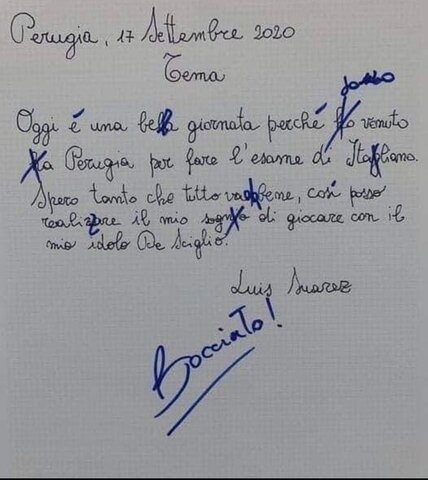 Perugia, 17 Settembre 2020
Tema
sono
Oggi é una bella giornata perché ho venuto
a Perugia per fare l'esame di Itagliano.
Spero tanto che tutto vada bene, così posso
realizzare il mio sognio di giocare con il
mio idolo De Sciglio.
Luis Suarez
Bocciato!